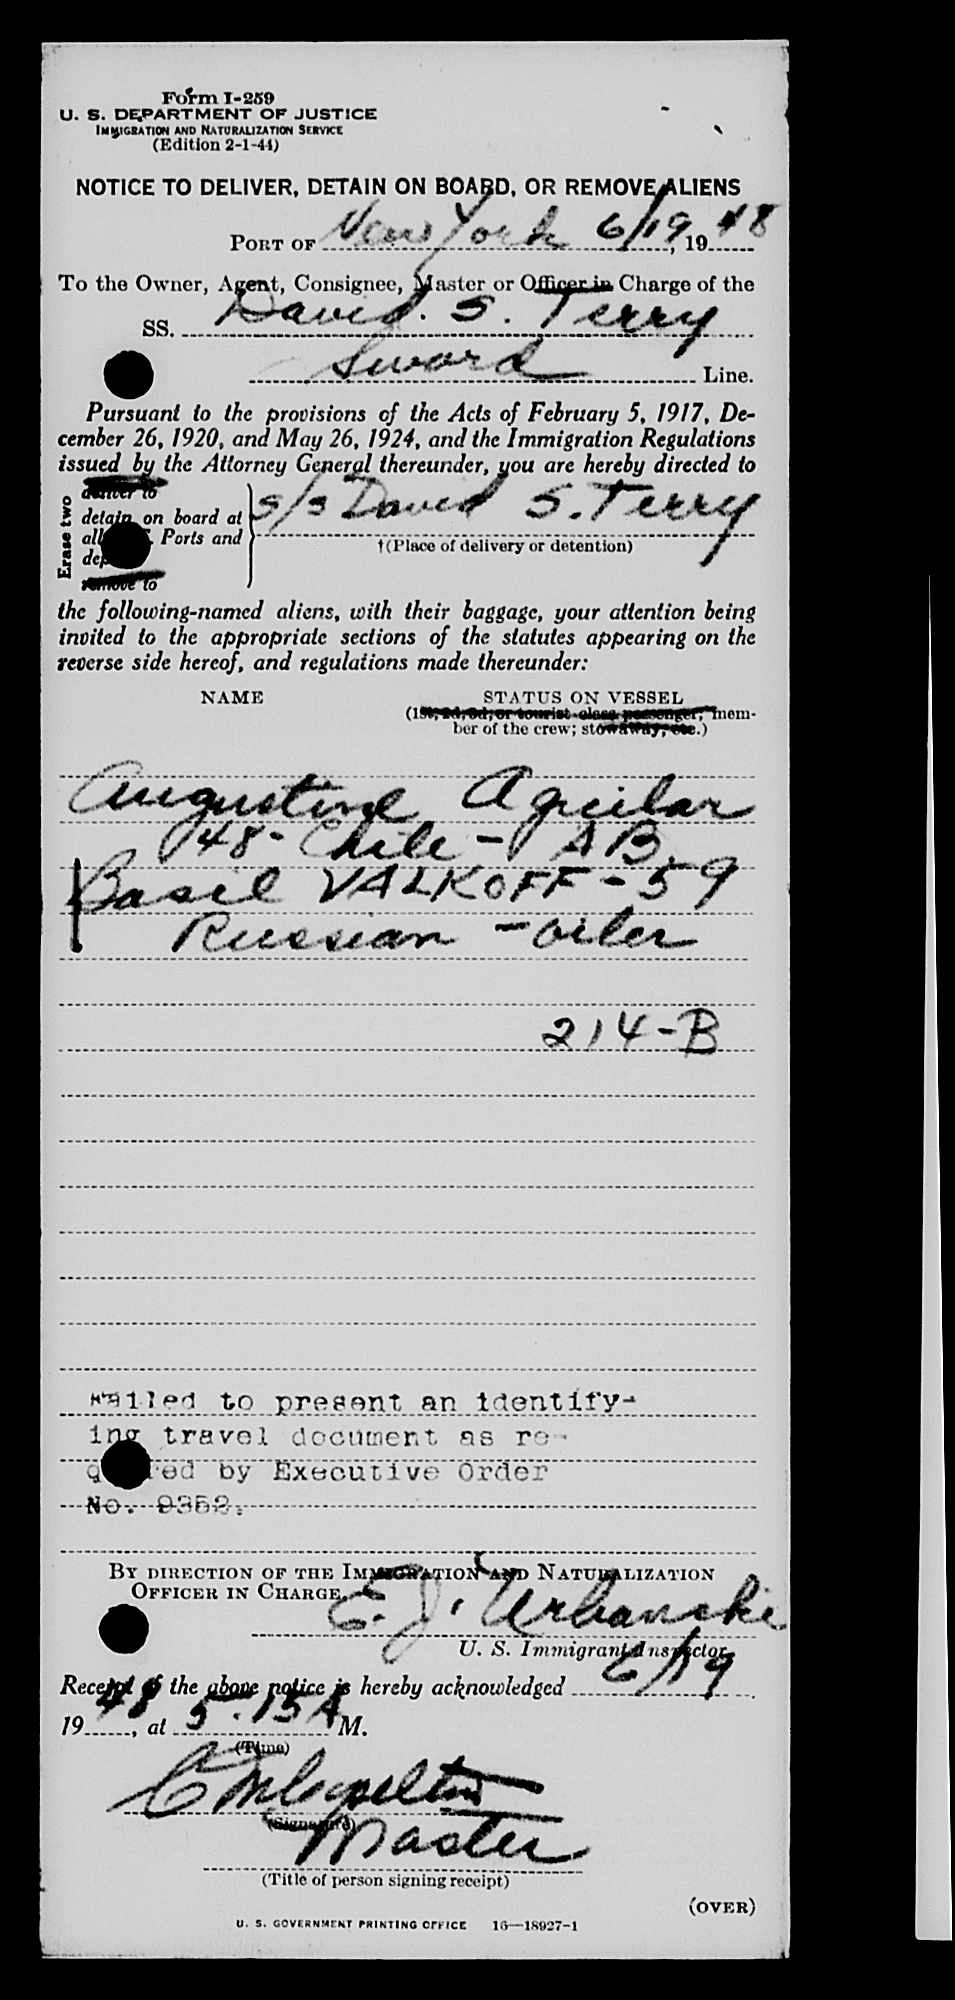 Form I-259
U. S. DEPARTMENT OF JUSTICE
IMMIGRATION AND NATURALIZATION SERVICE
(Edition 2-1-44)
NOTICE TO DELIVER, DETAIN ON BOARD, OR REMOVE ALIENS
PORT OF New York 6/19, 1948
To the Owner, Agent, Consignee, Master or Officer in Charge of the
SS. David. S. Terry
Sword Line.
Pursuant to the provisions of the Acts of February 5, 1917, De-
cember 26, 1920, and May 26, 1924, and the Immigration Regulations
issued by the Attorney General thereunder, you are hereby directed to
Erase two
deliver to
detain on board at
all Ports and
remove to
s/s David S. Terry
†(Place of delivery or detention)
the following-named aliens, with their baggage, your attention being
invited to the appropriate sections of the statutes appearing on the
reverse side hereof, and regulations made thereunder:
NAME STATUS ON VESSEL
(1st, 2d, 3d, or tourist-class passenger; mem-
ber of the crew; stowaway, etc.)
Augustine Aguilar
48 - Chile - AB
Basil VALKOFF - 59
Russian - oiler
214-B
Failed to present an identify-
ing travel document as re-
by Executive Order
No. 9352.
BY DIRECTION OF THE IMMIGRATION AND NATURALIZATION
OFFICER IN CHARGE
E. J. Urbanski
U. S. Immigrant Inspector
Receipt of the above notice is hereby acknowledged 6/19
1948, at 5.15 A M.
(Time)
(Signature)
Master
(Title of person signing receipt)
(OVER)
U. S. GOVERNMENT PRINTING OFFICE 16—18927-1